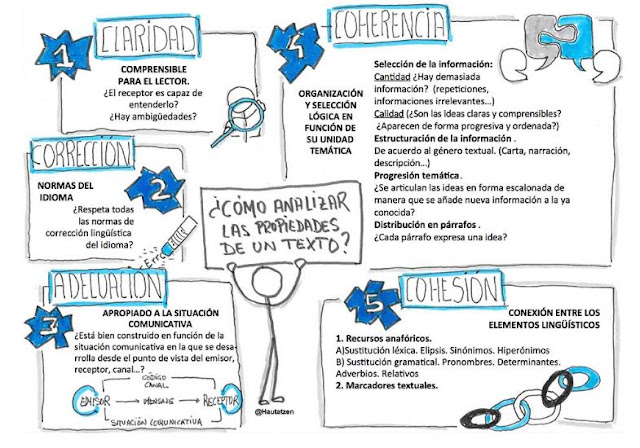 1 CLARIDAD
COMPRENSIBLE
PARA EL LECTOR.
¿El receptor es capaz de
entenderlo?
¿Hay ambigüedades?
CORRECCIÓN
2
NORMAS DEL
IDIOMA
¿Respeta todas
las normas de
corrección lingüística
del idioma?
Error
ADECUACIÓN
3
APROPIADO A LA SITUACIÓN
COMUNICATIVA
¿Está bien construido en función de la
situación comunicativa en la que se desa-
rrolla desde el punto de vista del emisor,
receptor, canal...?
CÓDIGO
CANAL
EMISOR MENSAJE RECEPTOR
SITUACIÓN COMUNICATIVA
¿CÓMO ANALIZAR
LAS PROPIEDADES
DE UN TEXTO?
@Hautatzen
4 COHERENCIA
ORGANIZACIÓN
Y SELECCIÓN
LÓGICA EN
FUNCIÓN DE
SU UNIDAD
TEMÁTICA
Selección de la información:
Cantidad ¿Hay demasiada
información? (repeticiones,
informaciones irrelevantes...)
Calidad (¿Son las ideas claras y comprensibles?
¿Aparecen de forma progresiva y ordenada?)
Estructuración de la información .
De acuerdo al género textual. (Carta, narración,
descripción...)
Progresión temática .
¿Se articulan las ideas en forma escalonada de
manera que se añade nueva información a la ya
conocida?
Distribución en párrafos .
¿Cada párrafo expresa una idea?
5 COHESIÓN
CONEXIÓN ENTRE LOS
ELEMENTOS LINGÜÍSTICOS
1. Recursos anafóricos.
A)Sustitución léxica. Elipsis. Sinónimos. Hiperónimos
B) Sustitución gramatical. Pronombres. Determinantes.
Adverbios. Relativos
2. Marcadores textuales.